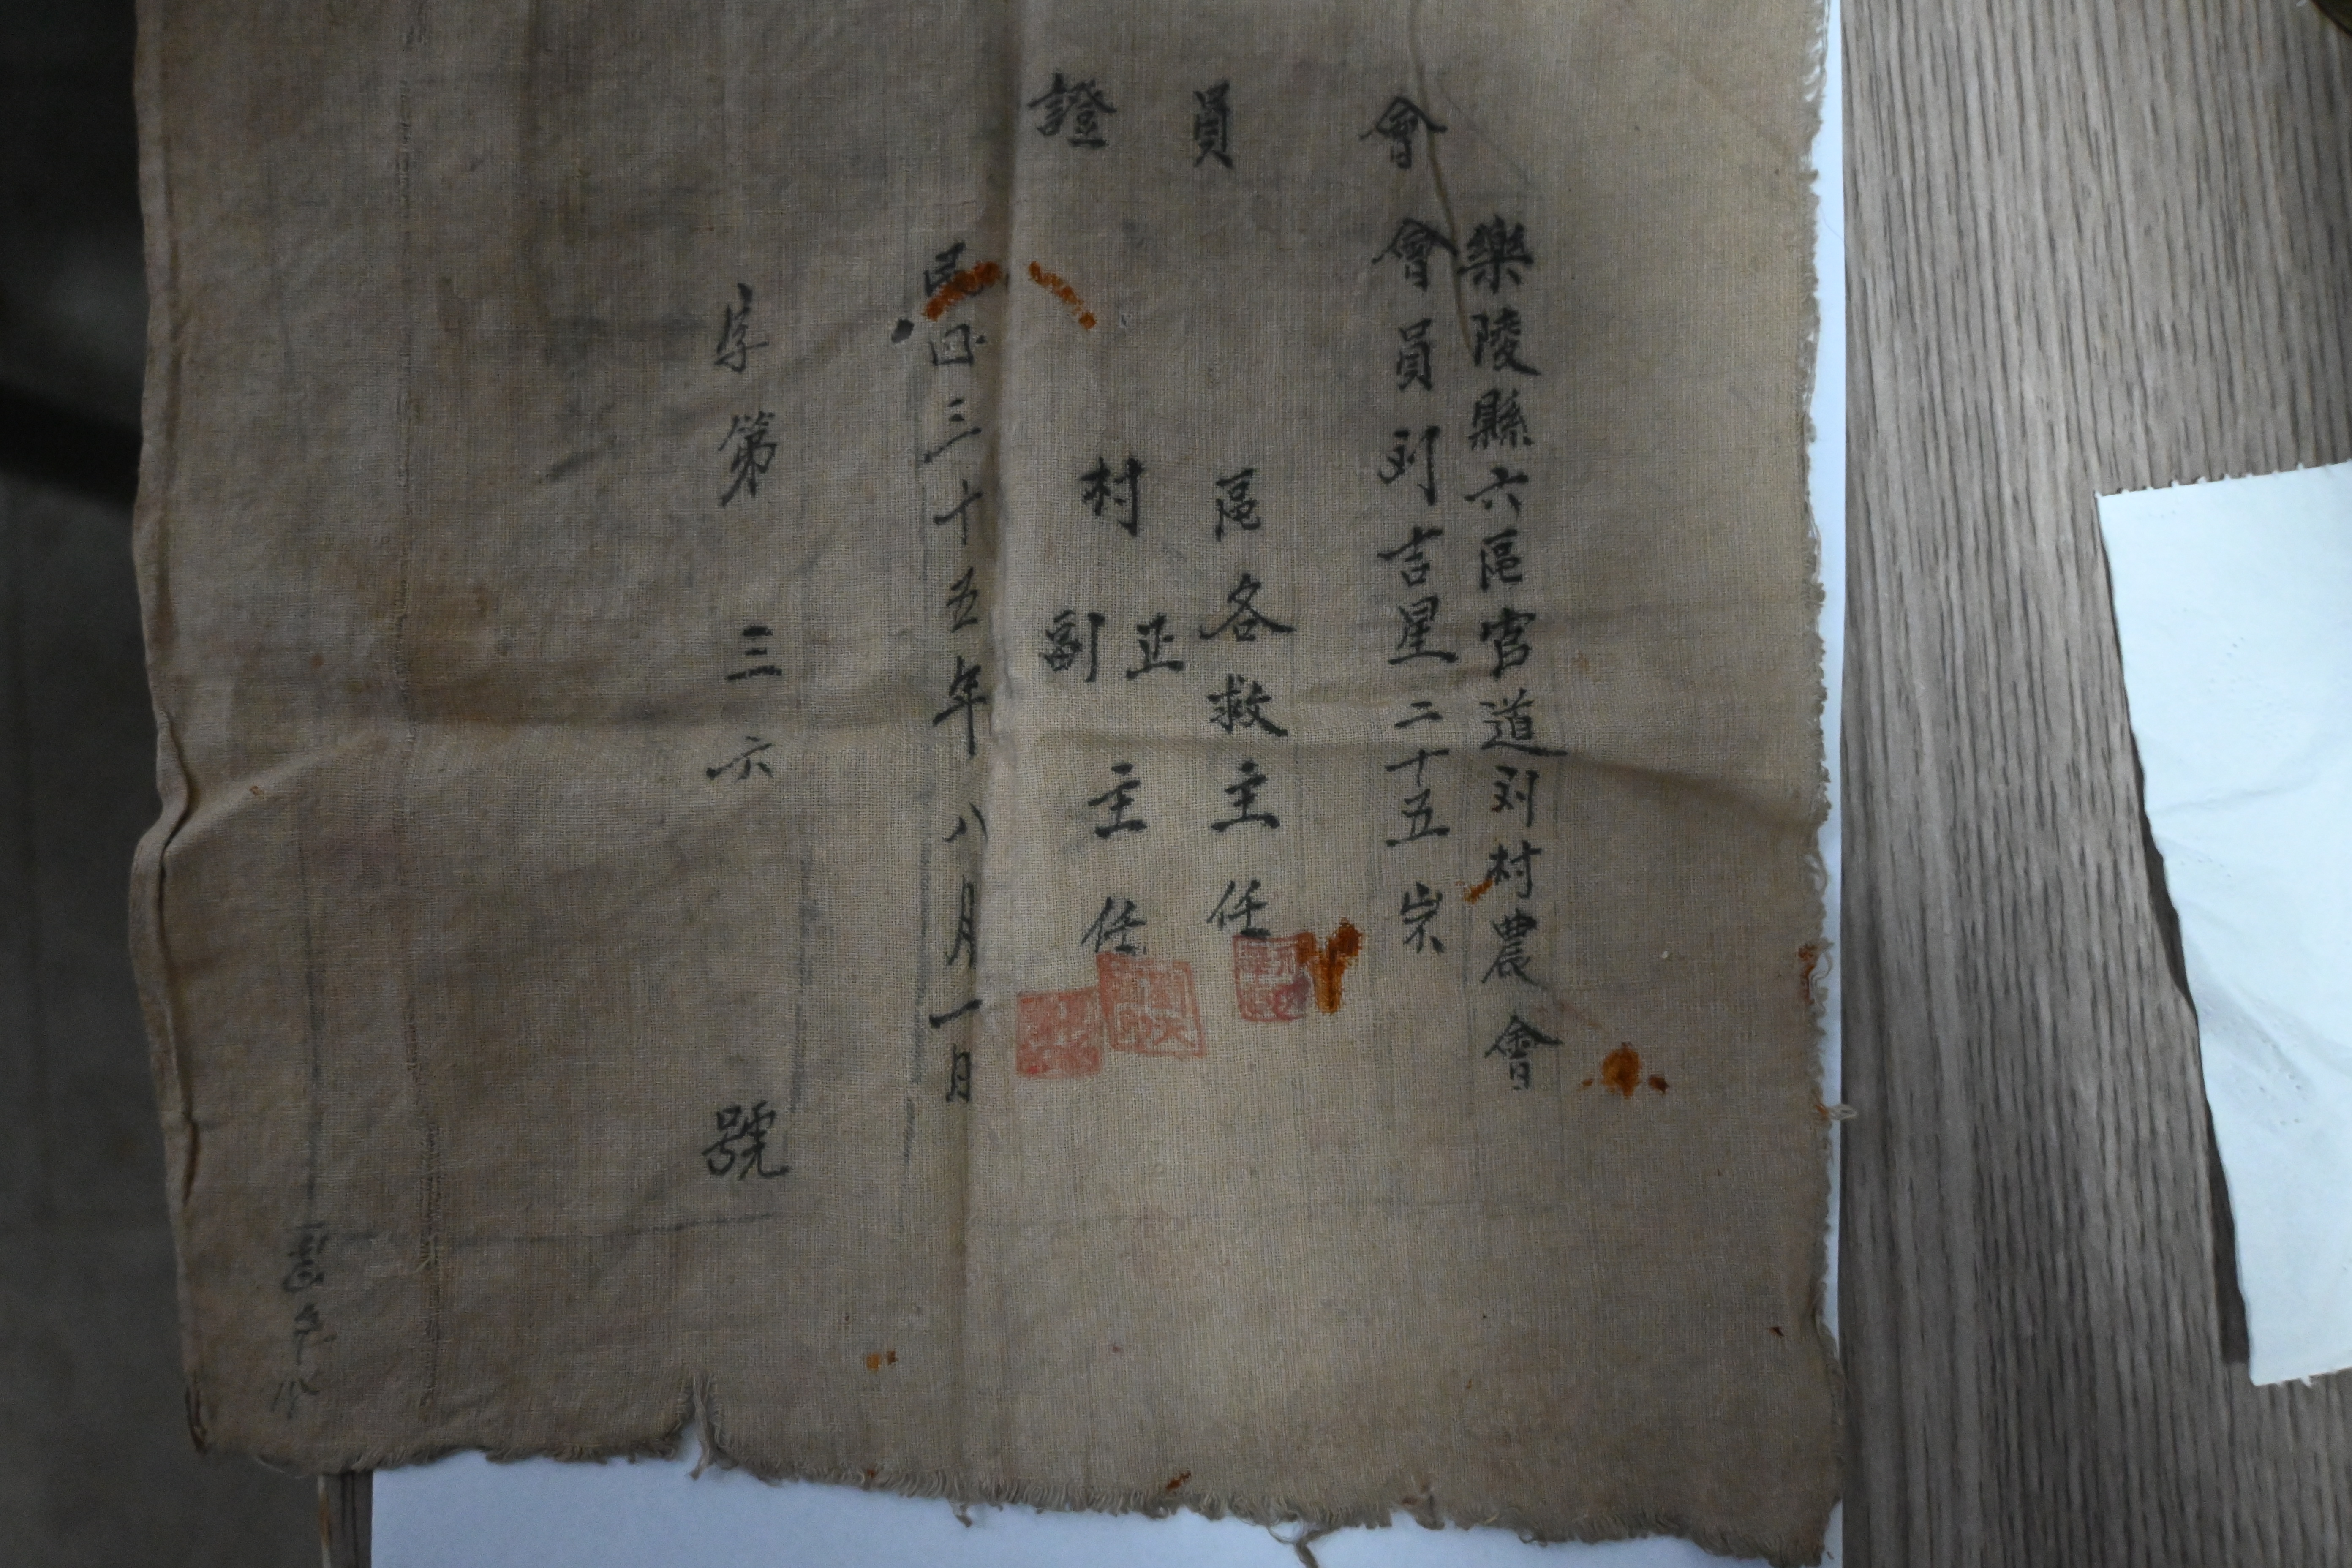 會員證
樂陵縣六區宮道刘村農會
會員刘吉星二十五岁
區各救主任
村正副主任
民国三十五年八月一日
字第三六號